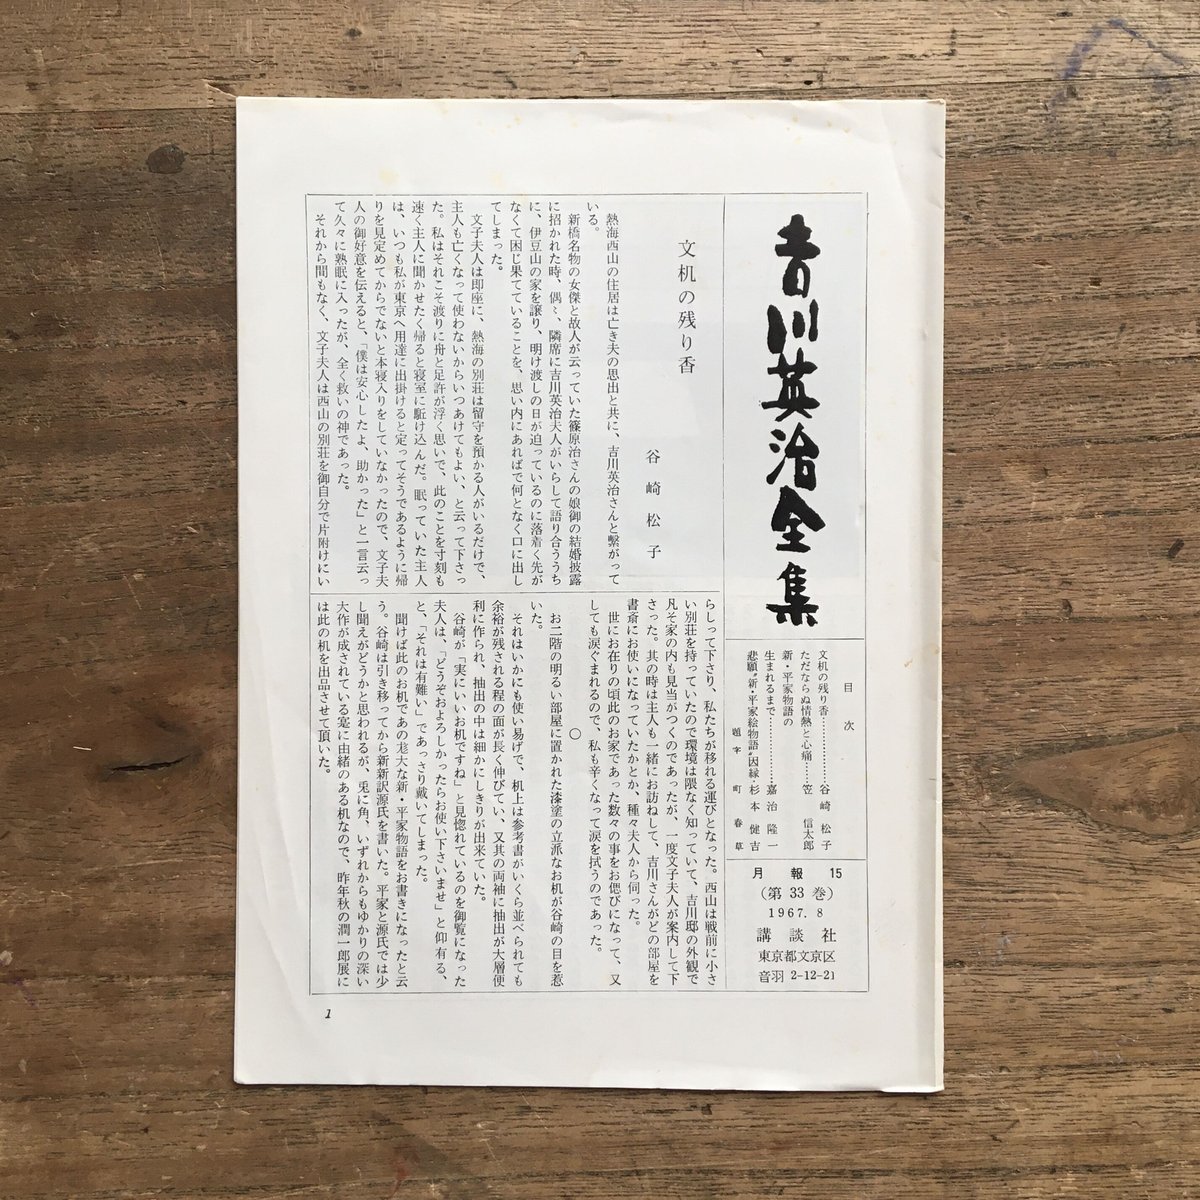 吉川英治全集
目次
文机の残り香…………谷崎松子
ただならぬ情熱と心痛……笠信太郎
新・平家物語の
生まれるまで…………嘉治隆一
悲願“新・平家絵物語”因縁・杉本健吉
題字 町春草
月報 15
(第33巻)
1967. 8
講談社
東京都文京区
音羽 2-12-21
文机の残り香
谷崎松子
熱海西山の住居は亡き夫の思出と共に、吉川英治さんと繫がって
いる。
新橋名物の女傑と故人が云っていた篠原治さんの娘御の結婚披露
に招かれた時、偶々、隣席に吉川英治夫人がいらして語り合ううち
に、伊豆山の家を譲り、明け渡しの日が迫っているのに落着く先が
なくて困じ果てていることを、思い内にあればで何となく口に出し
てしまった。
文子夫人は即座に、熱海の別荘は留守を預かる人がいるだけで、
主人も亡くなって使わないからいつあけてもよい、と云って下さっ
た。私はそれこそ渡りに舟と足許が浮く思いで、此のことを寸刻も
速く主人に聞かせたく帰ると寝室に駈け込んだ。眠っていた主人
は、いつも私が東京へ用達に出掛けると定ってそうであるように帰
りを見定めてからでないと本寝入りをしていなかったので、文子夫
人の御好意を伝えると、「僕は安心したよ、助かった」と一言云っ
て久々に熟眠に入ったが、全く救いの神であった。
それから間もなく、文子夫人は西山の別荘を御自分で片附けにい
らしって下さり、私たちが移れる運びとなった。西山は戦前に小さ
い別荘を持っていたので環境は隈なく知っていて、吉川邸の外観で
凡そ家の内も見当がつくのであったが、一度文子夫人が案内して下
さった。其の時は主人も一緒にお訪ねして、吉川さんがどの部屋を
書斎にお使いになっていたかとか、種々夫人から伺った。
世にお在りの頃此のお家であった数々の事をお偲びになって、又
しても涙ぐまれるので、私も辛くなって涙を拭うのであった。
○
お二階の明るい部屋に置かれた漆塗の立派なお机が谷崎の目を惹
いた。
それはいかにも使い易げで、机上は参考書がいくら並べられても
余裕が残される程の面が長く伸びてい、又其の両袖に抽出が大層便
利に作られ、抽出の中は細かにしきりが出来ていた。
谷崎が「実にいいお机ですね」と見惚れているのを御覧になった
夫人は、「どうぞおよろしかったらお使い下さいませ」と仰有る、
と、「それは有難い」であっさり戴いてしまった。
聞けば此のお机であの尨大な新・平家物語をお書きになったと云
う。谷崎は引き移ってから新新訳源氏を書いた。平家と源氏では少
し聞えがどうかと思われるが、兎に角、いずれからもゆかりの深い
大作が成されている寔に由緒のある机なので、昨年秋の潤一郎展に
は此の机を出品させて頂いた。
1